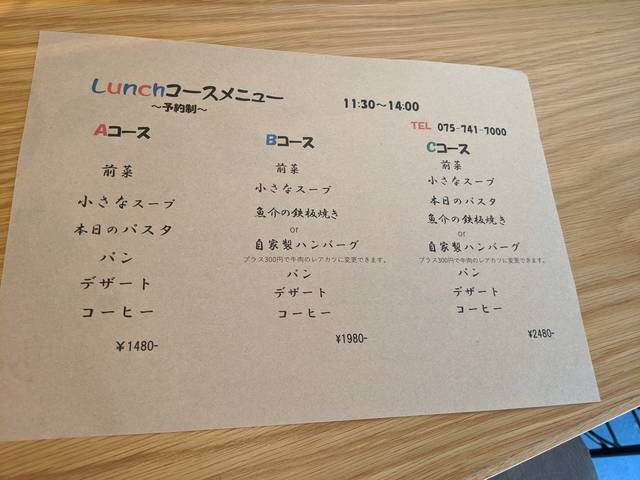 Lunchコースメニュー
～予約制～
11:30～14:00
TEL 075-741-7000
Aコース
前菜
小さなスープ
本日のパスタ
パン
デザート
コーヒー
￥1480-
Bコース
前菜
小さなスープ
魚介の鉄板焼き
or
自家製ハンバーグ
プラス300円で牛肉のレアカツに変更できます。
パン
デザート
コーヒー
¥1980-
Cコース
前菜
小さなスープ
本日のパスタ
魚介の鉄板焼き
or
自家製ハンバーグ
プラス300円で牛肉のレアカツに変更できます。
パン
デザート
コーヒー
¥2480-